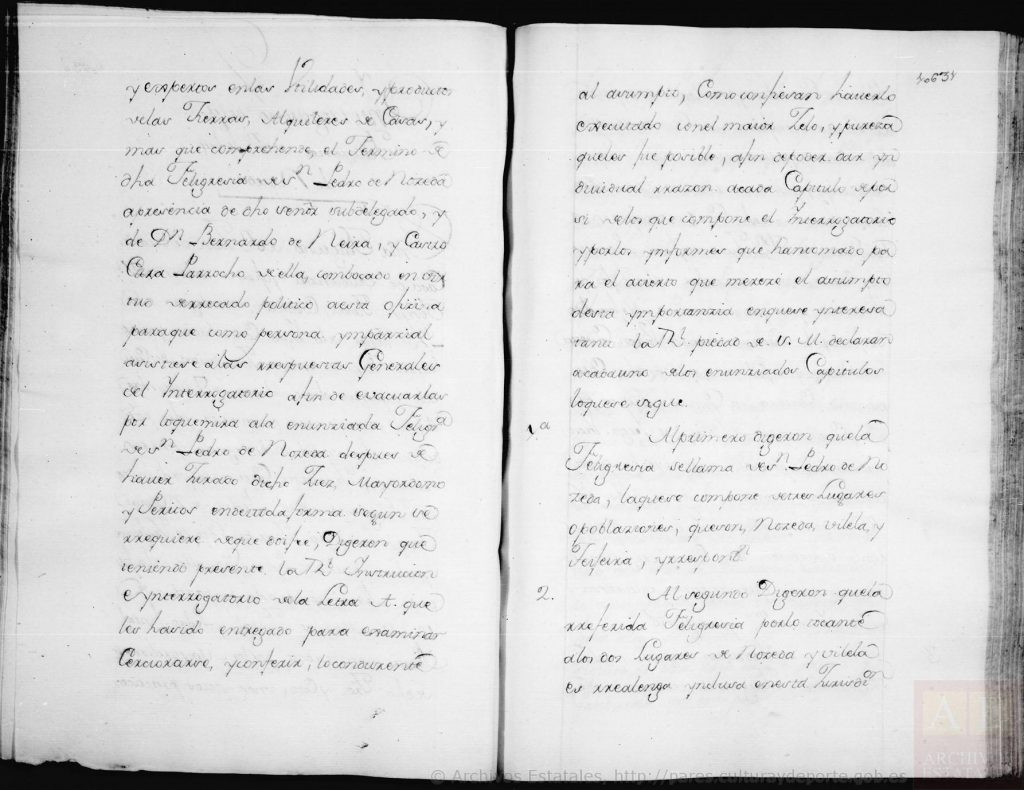 y expertos enlas Utilidades, yproductos
delas Tierras, Alquileres de Casas, y
mas que comprehende, el Termino de
dha Feligresia de Sn. Pedro de Nozeda
apresencia de dho señor subdelegado, y
de Dn. Bernardo de Neira, y Castro
Cura Parrocho de ella, combocado en vir
tud derrecado politico aesta ofizina
paraque como persona ymparzial
asistiese alas rrespuestas Generales
del Interrogatorio afin de evacuarlas
por loquemira ala enunziada Feligra
de Sn. Pedro de Nozeda despues de
haver Jurado dicho Juez, Mayordomo
y Peritos endevida forma segun se
rrequiere deque doi fee, Digeron que
teniendo presente la Rl. Instruccion
e Ynterrogatorio dela Letra A. que
les hasido entregado para examinar
Cerciorarse, yconferir, loconduzente
40634
al asumpto, Como confiesan haverlo
executado conel maior Zelo, ypureza
queles fue posible, afin depoder dar yn
dividual rrazon acada Capitulo depor
si delos que compone el Interrogatorio
yporlos ynformes que hantomado pa
ra el acierto que merece el asumpto
desta ymportanzia enquese ynteresa
tanto la Rl. piedad de S. M. declaran
acadauno delos enunziados Capitulos
loquese sigue.
1.a
Alprimero digeron quela
Feligresia sellama de Sn. Pedro de No
zeda, laquese compone detres Lugares
opoblaziones, queson, Nozeda, Vilela, y
Teijeira, yrresponden
2.
Al segundo Digeron quela
rreferida Feligresia porlo tocante
alos dos Lugares de Nozeda y Vilela
es rrealenga yndusa enesta Jurisdion
© Archivos Estatales, http://pares.culturaydeporte.gob.es
ARCHIVOS
ESTATALES